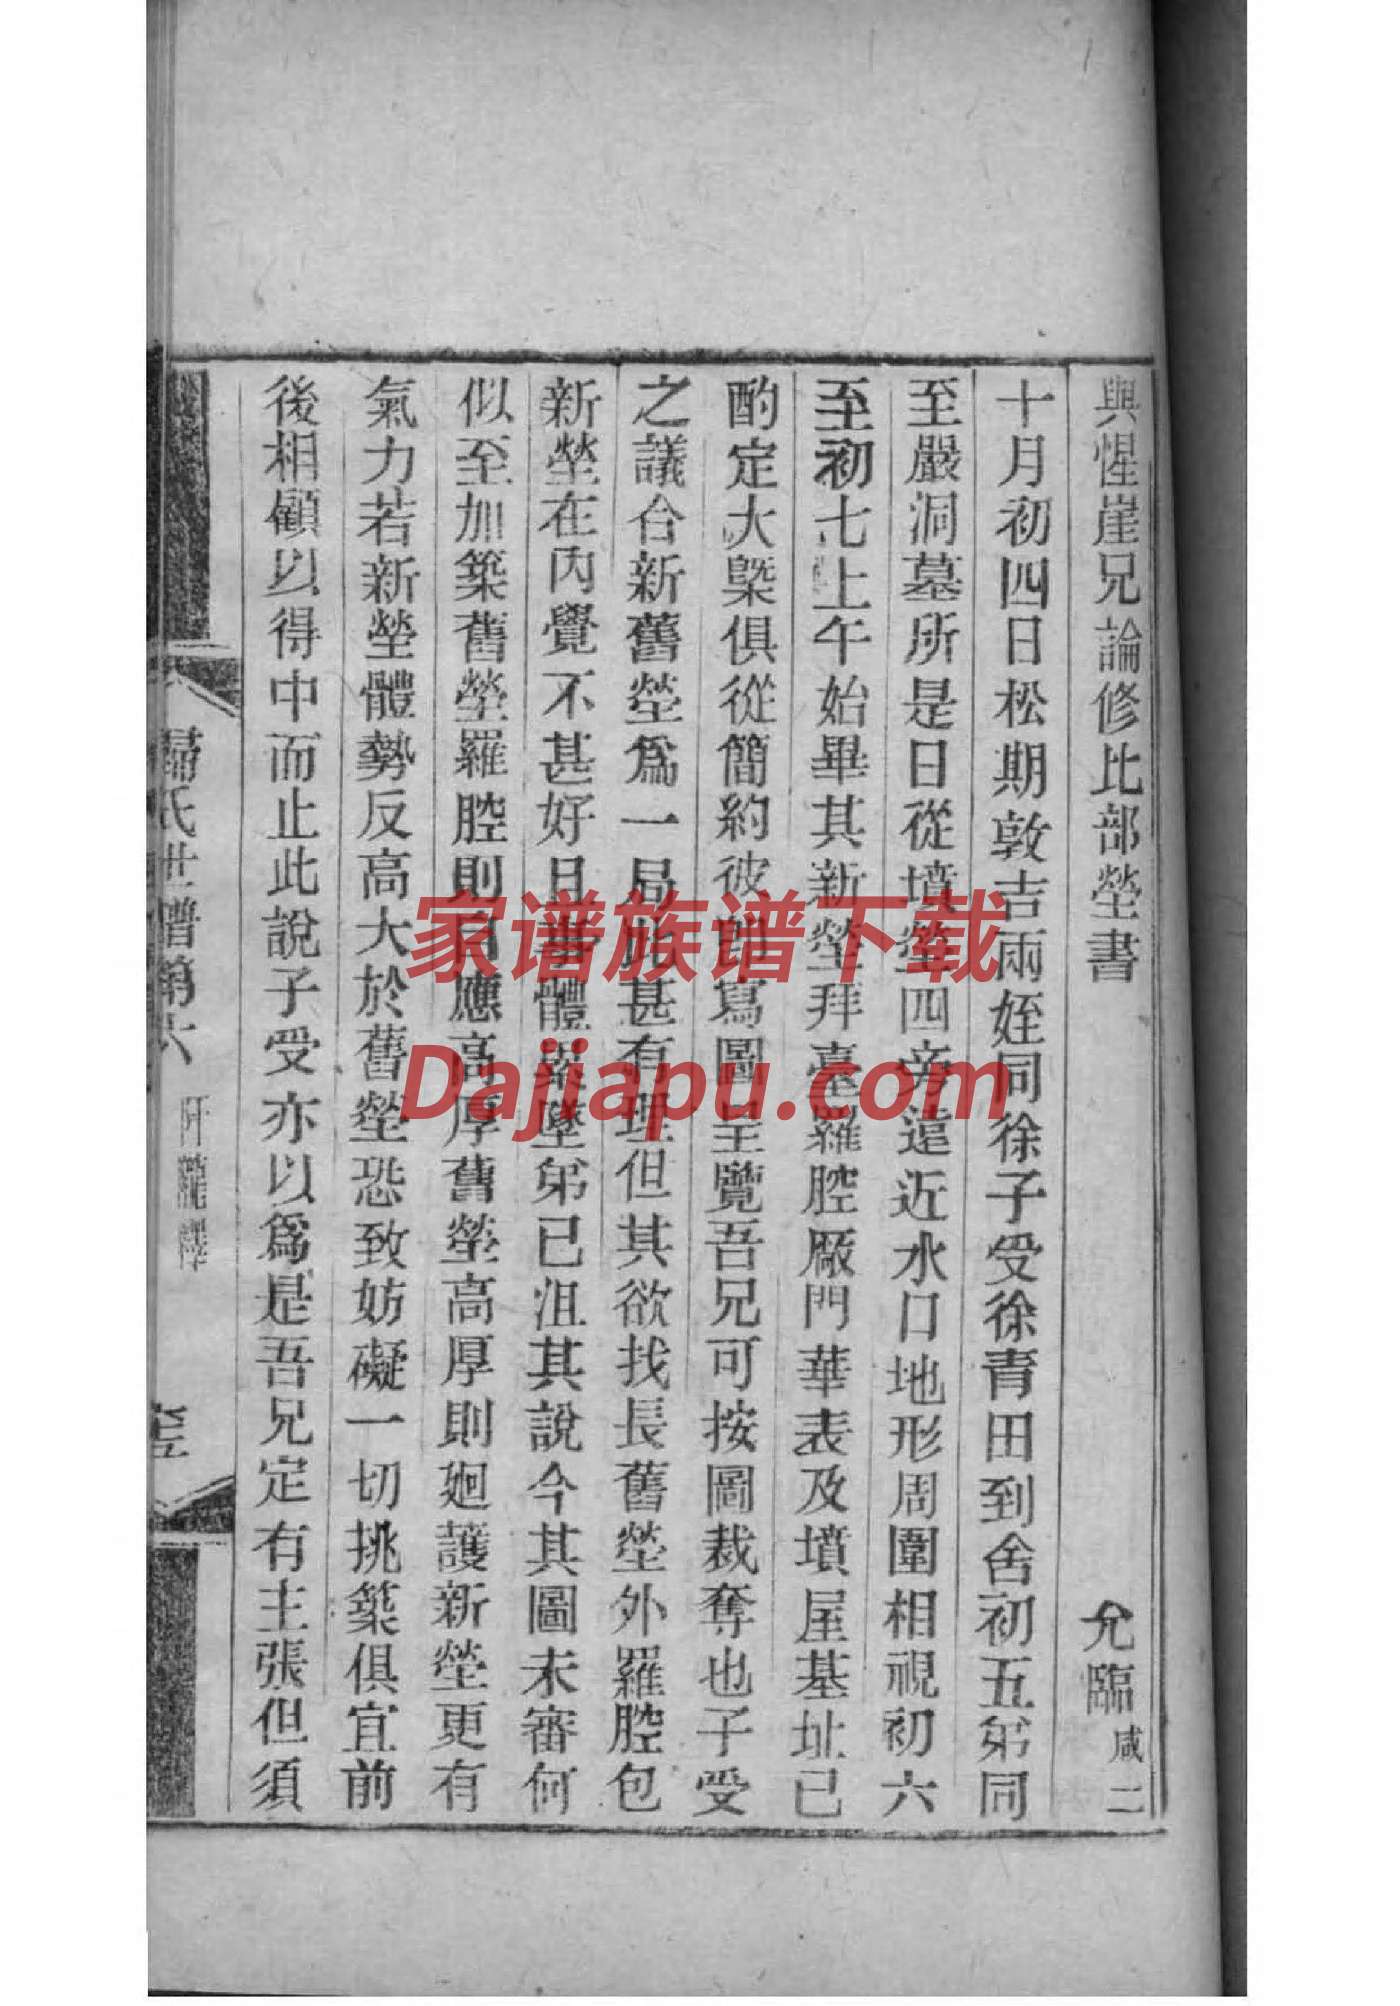 與惺崖兄論修比部塋書 允臨咸二
十月初四日松期敦吉兩姪同徐子受徐青田到舍初五弟同
至嚴洞墓所是日從墳塋四旁遠近水口地形周圍相視初六
至初七上午始畢其新塋拜臺羅腔厰門華表及墳屋基址已
酌定大槩俱從簡約彼卽寫圖呈覽吾兄可按圖裁奪也子受
之議合新舊塋爲一局此甚有理但其欲找長舊塋外羅腔包
新塋在內覺不甚好且事體墜弟已沮其說今其圖未審何
似至加築舊塋羅腔則自應高厚舊塋高厚則廻護新塋更有
氣力若新塋體勢反高大於舊塋恐致妨礙一切挑築俱宜前
後相顧以得中而止此說子受亦以爲是吾兄定有主張但須
歸氏世譜第六
家谱族谱下载
Dajiapu.com